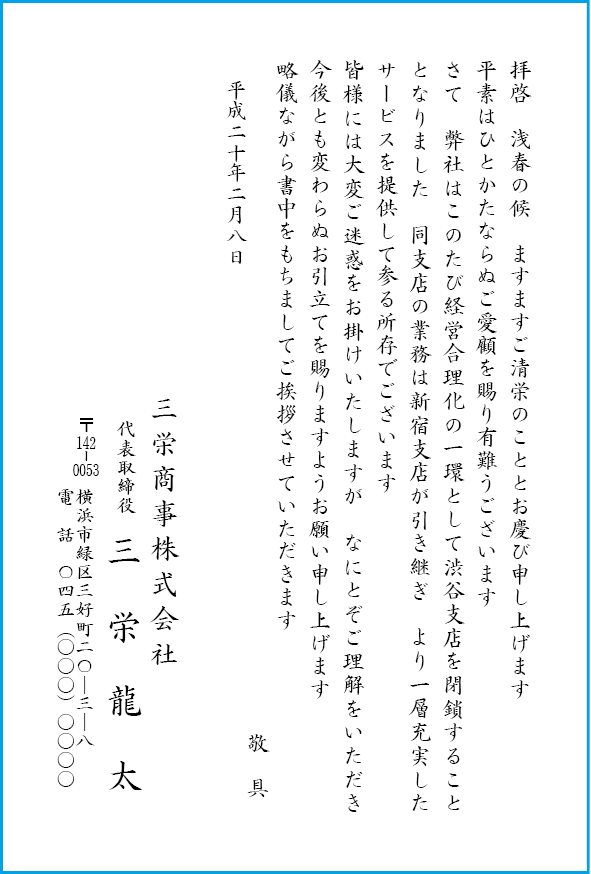 拝啓　浅春の候　ますますご清栄のこととお慶び申し上げます
平素はひとかたならぬご愛顧を賜り有難うございます
さて　弊社はこのたび経営合理化の一環として渋谷支店を閉鎖すること
となりました　同支店の業務は新宿支店が引き継ぎ　より一層充実した
サービスを提供して参る所存でございます
皆様には大変ご迷惑をお掛けいたしますが　なにとぞご理解をいただき
今後とも変わらぬお引立てを賜りますようお願い申し上げます
略儀ながら書中をもちましてご挨拶させていただきます
敬具
平成二十年二月八日
三栄商事株式会社
代表取締役　三栄龍太
〒142-0053　横浜市緑区三好町二〇―三―八
電話　〇四五（〇〇〇）〇〇〇〇